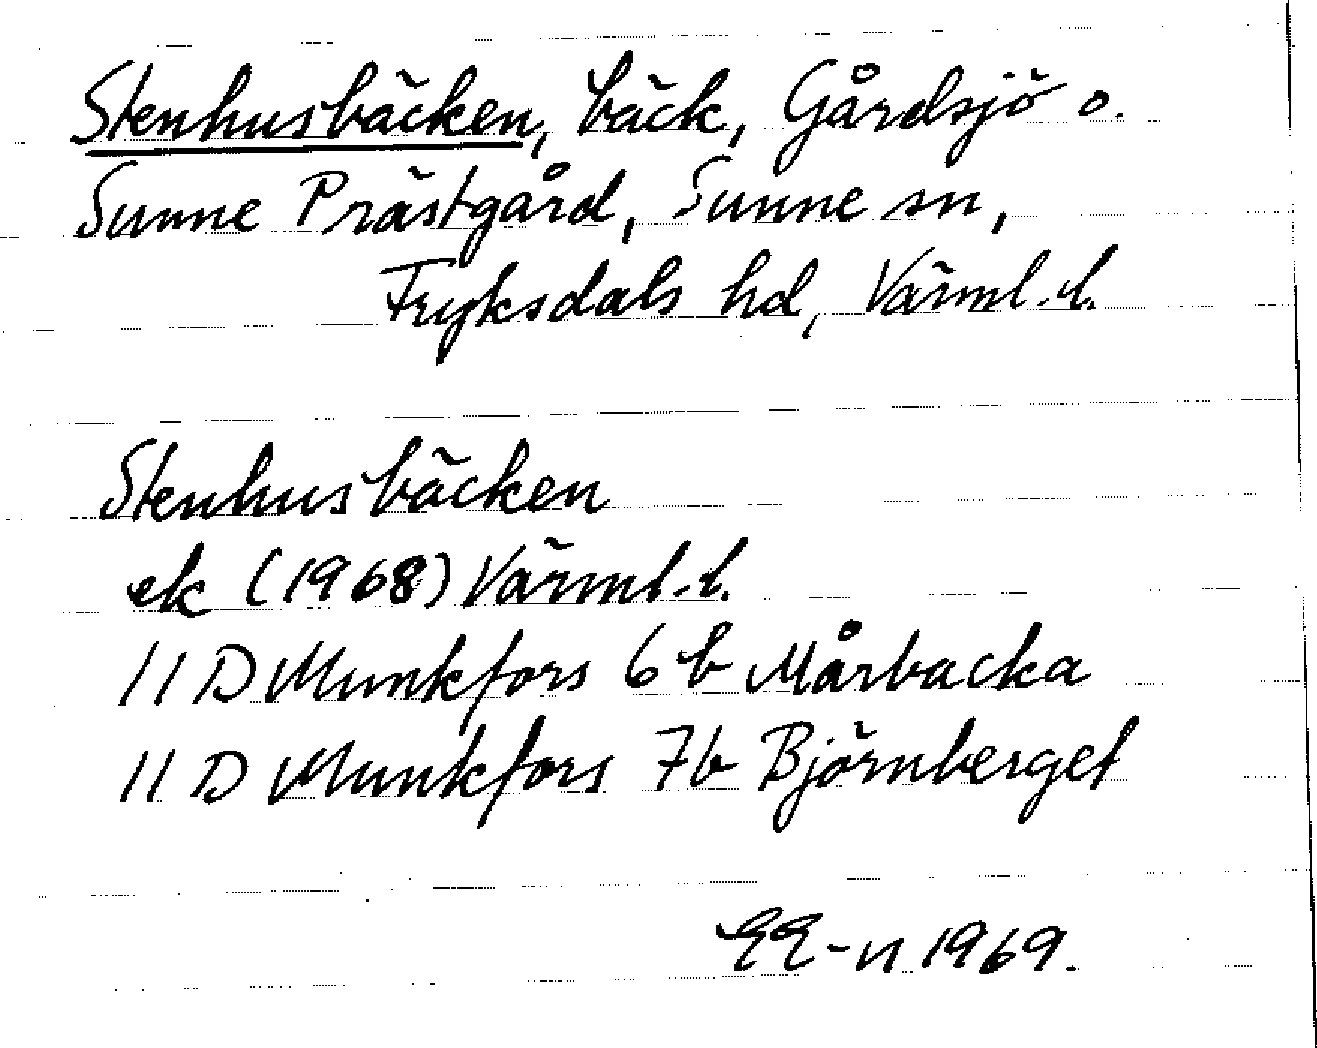 Stenhusbäcken, bäck, Gårdsjö o.
Sunne Prästgård, Sunne sn,
Fryksdals hd, Värml. l.
Stenhusbäcken
ek (1968) Värml. l.
11 D Munkfors 6 b Mårbacka
11 D Munkfors 7b Björnberget
EE-n 1969.